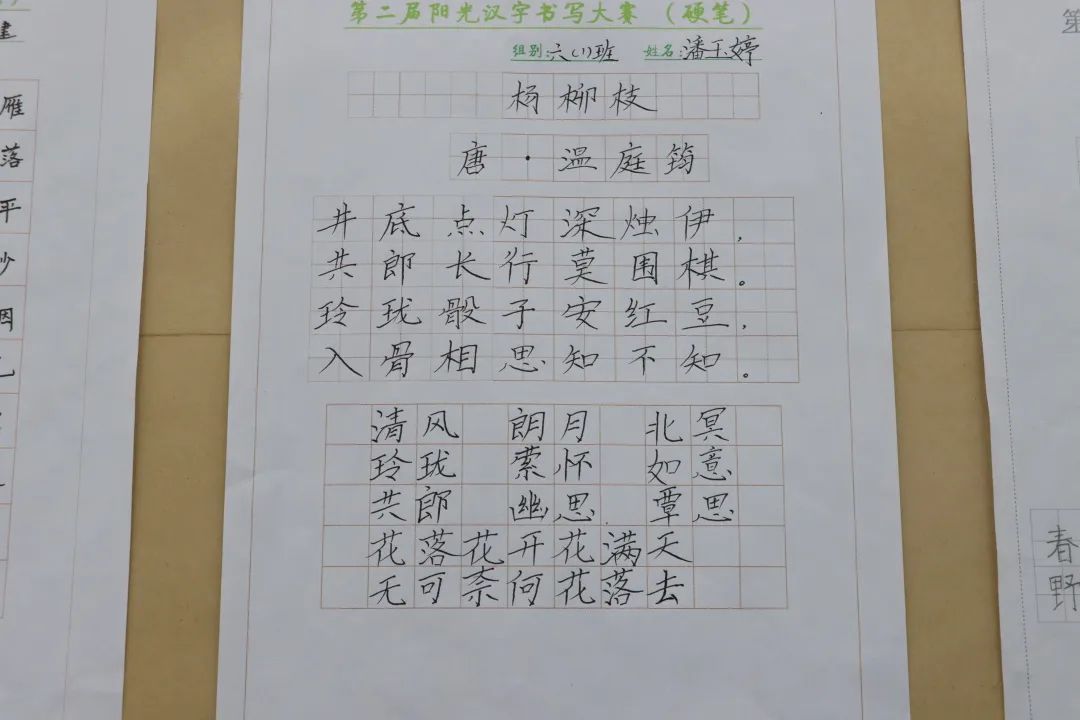 第二届阳光汉字书写大赛 （硬笔）
组别:六(1)班 姓名:潘玉婷
杨柳枝
唐·温庭筠
井底点灯深烛伊，
共郎长行莫围棋。
玲珑骰子安红豆，
入骨相思知不知。
清风 朗月 北冥
玲珑 萦怀 如意
共郎 幽思 覃思
花落花开花满天
无可奈何花落去
雁
落
平
春
野
第